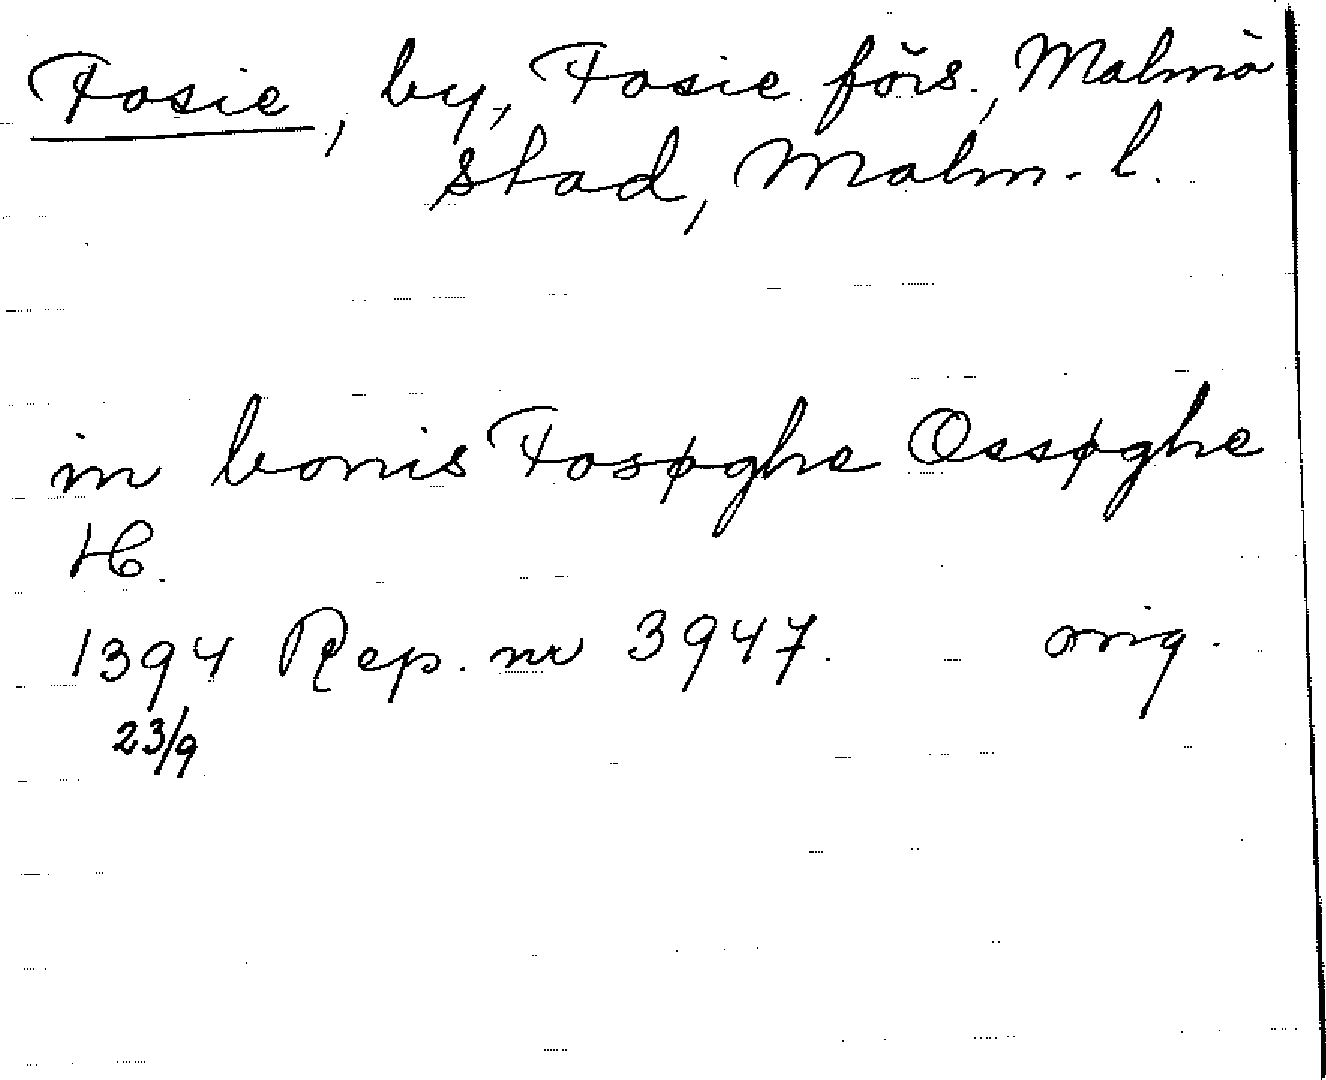 Fosie, by, Fosie förs., Malmö
stad, Malm. l.
in bonis Fosøghe Ossøghe
H.
1394 Rep. nr 3947. orig.
23/9